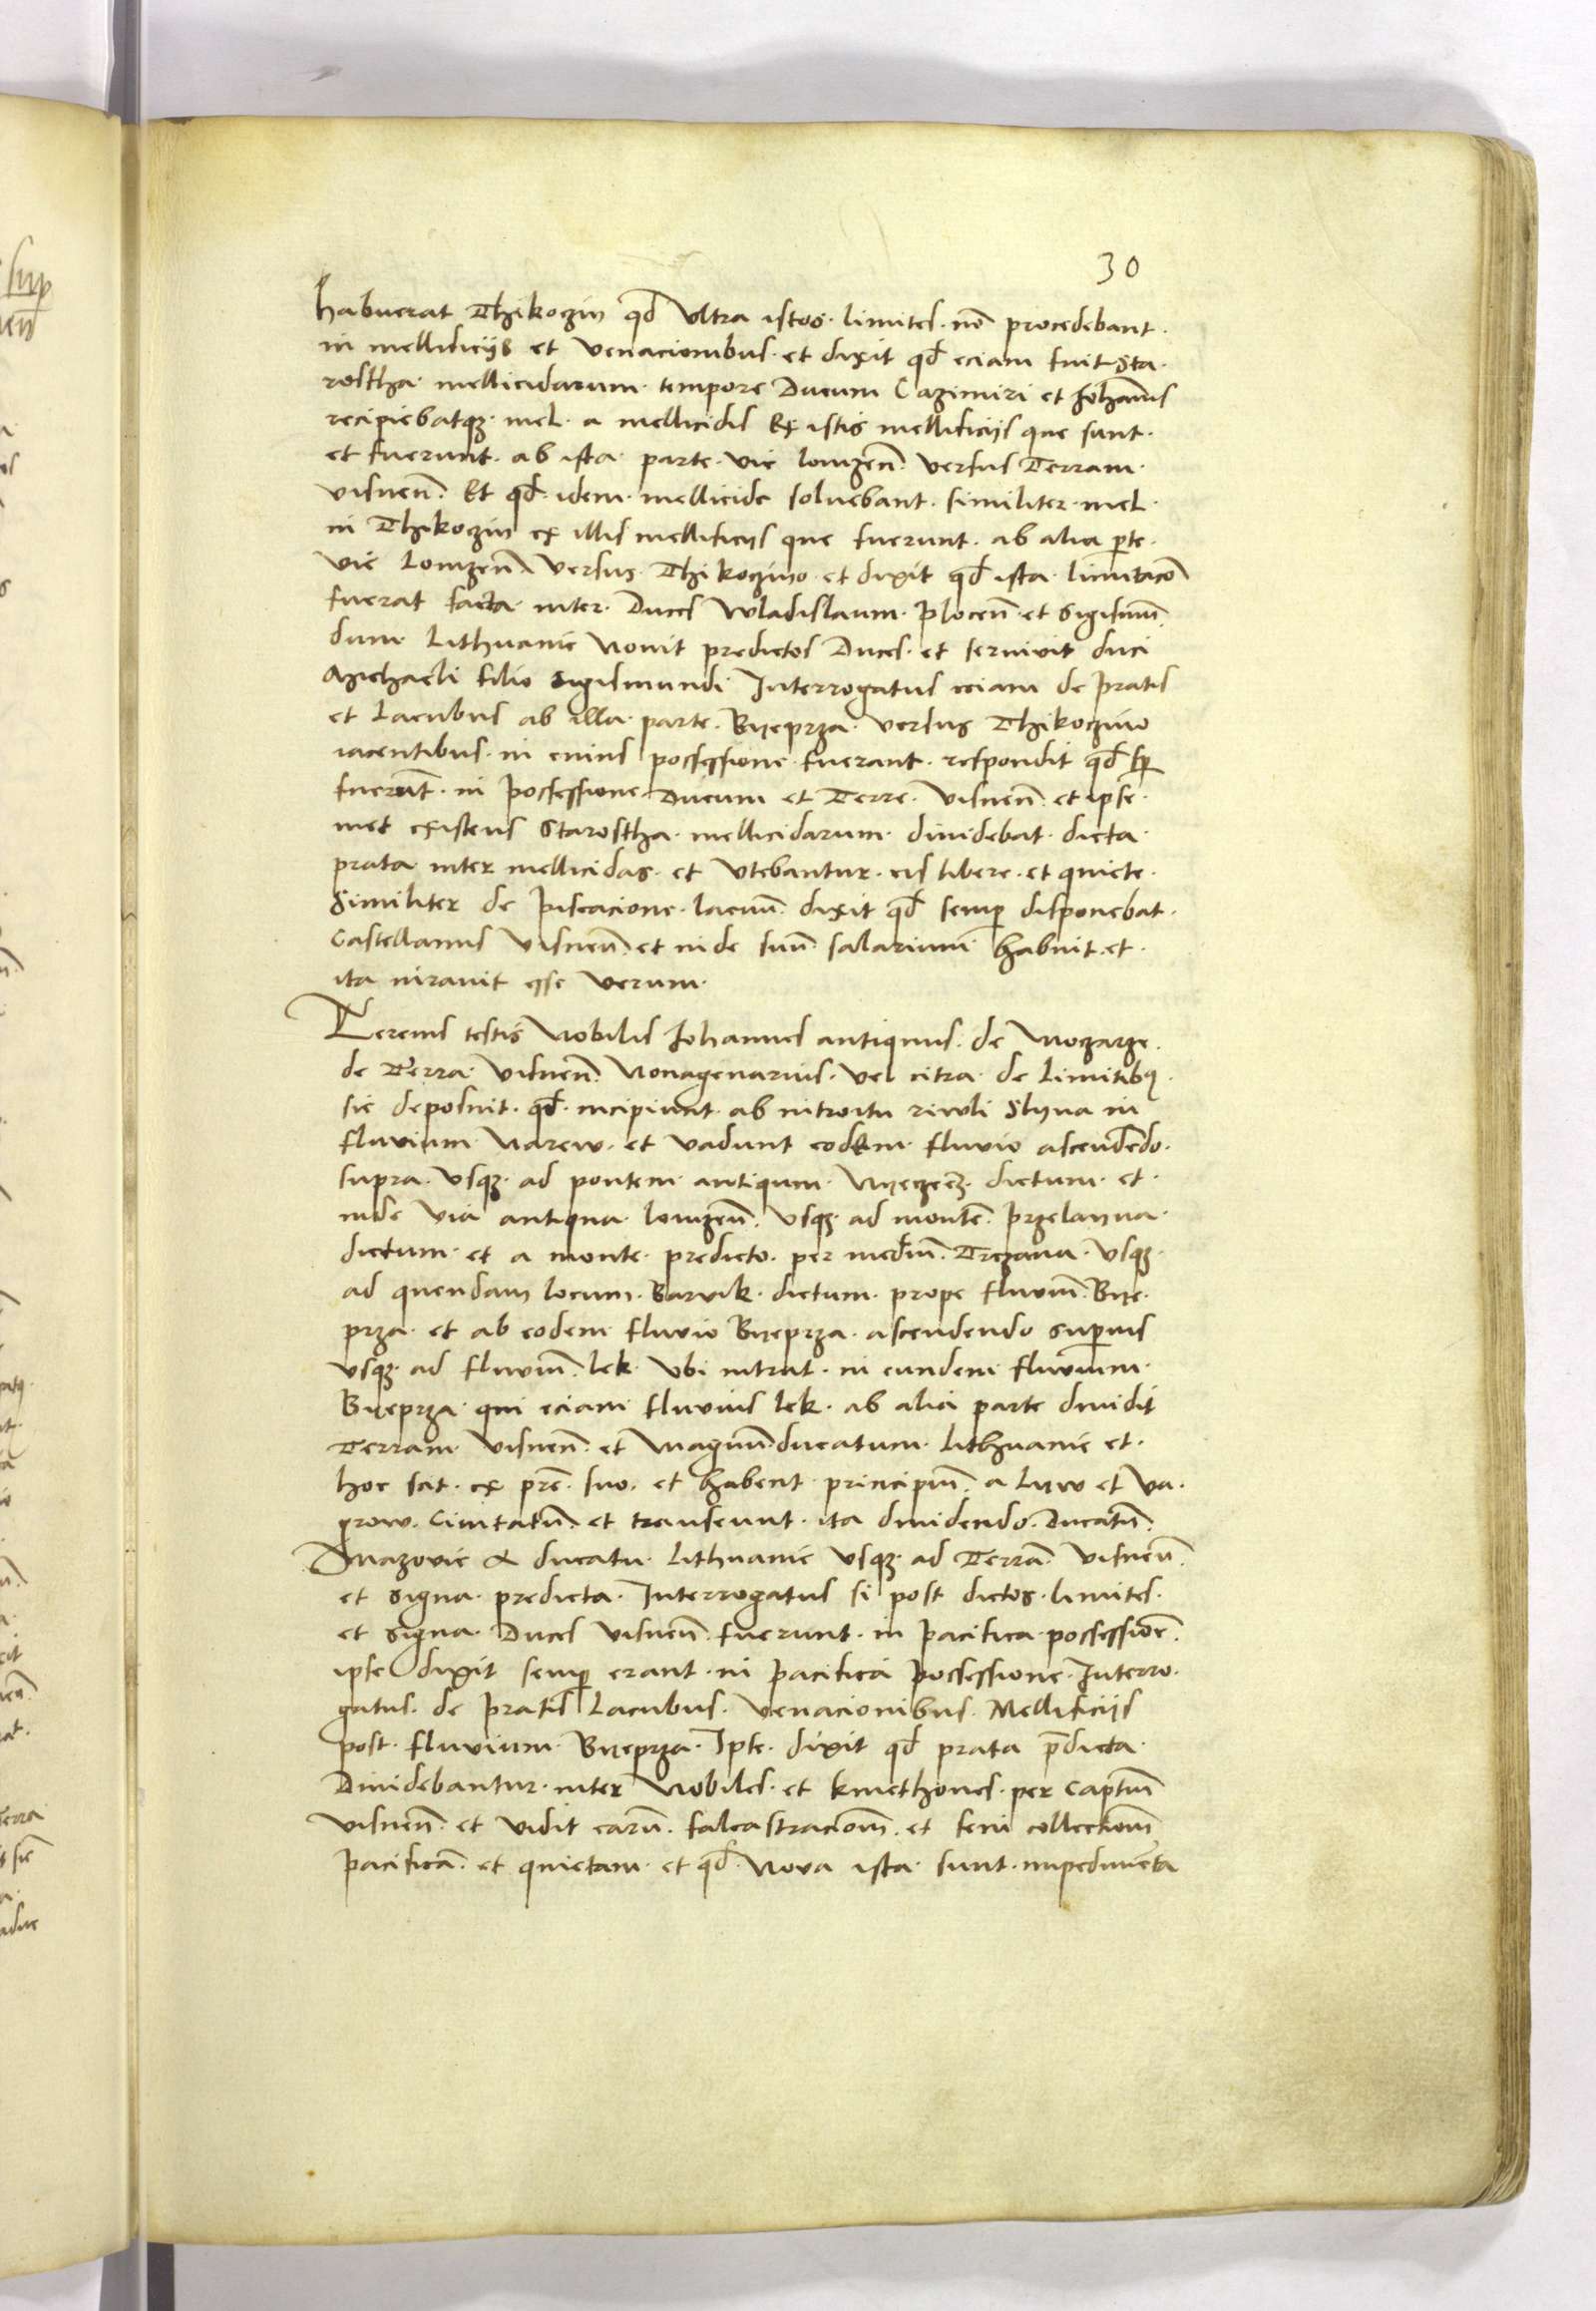 30
habuerat Thikoczin qđ vltra istos limites nō procedebant
in mellificijs et venacionibus et dixit qđ eciam fuit Sta
rostha mellicidarum tempore Ducum Cazimiri et Johānis
recipiebatqȝ mel a mellicidis Ex istis mellificijs que sunt
et fuerunt ab ista parte vie lomzeñ versus Terram
visneñ Et qđ idem mellicide soluebant similiter mel
in Thikoczin ex illis mellificijs que fuerunt ab alia p̱te
vie Lomzeñ versus Thikoczino et dixit qđ ista limitacō
fuerat facta inter Duces Wladislaum ploceñ et Sigismū
dum Lithuanie Nouit predictos Duces et seruiuit duci
Michaeli filio Sigismundi Interrogatus eciam de pratis
et Lacubus ab illa parte Byeprza versus Thikoczino
iacentibus in cuius possessione fuerant respondit qđ sp̱
fuerūt in possessione Ducum et Terre visneñ et ipse
met existens Starostha mellicidarum diuidebat dicta
prata inter mellicidas et vtebantur eis libere et quiete
Similiter de piscacione lacuū dixit qđ semp̱ disponebat
Castellanus visneñ et inde suū salarium habuit et
ita iurauit esse verum
Tercius testis Nobilis Johannes antiquus de Moczarze
de Terra visneñ Nonagenarius vel citra de limitibꝫ
sic deposuit qđ incipiunt ab introitu riwli Slyna in
fluuium Narew et vadunt eodem fluuio ascendēdo
supra vsqȝ ad pontem antiqum dictum et
inde via antiqua lomzeñ vsqȝ ad montē przelayna
dictum et a monte predicto per mediū Trczana vsqȝ
ad quendam locum Barvik dictum prope fluuiū Bye
prza et ab eodem fluuio Byeprza ascendendo sup̱ius
vsqȝ ad fluuiū lek vbi intrat in eundem fluuium
Byeprza qui eciam fluuius lek ab alia parte diuidit
Terram visneñ et Magnū ducatum Lithuanie et
hoc scit ex pr̄e suo et habent principiū a Lyw et va
grow Ciuitatū et transeunt ita diuidendo Ducatū
Mazouie a ducatu Lithuanie vsqȝ ad Terrā visneñ
et signa predicta Interrogatus si post dictos limites
et signa Duces visneñ fuerunt in pacifica possessione
ipse dixit semp̱ erant in pacifica possessione Interro
gatus de pratis Lacubus venacionibus Mellificijs
post fluuium Byeprza Ipse dixit qđ prata p̄dicta
Diuidebantur inter Nobiles et kmethones per Captm̄
visneñ et vidit earū falcastracionē et feni collectionē
pacificā et quietam et qđ Noua ista sunt impedimēta